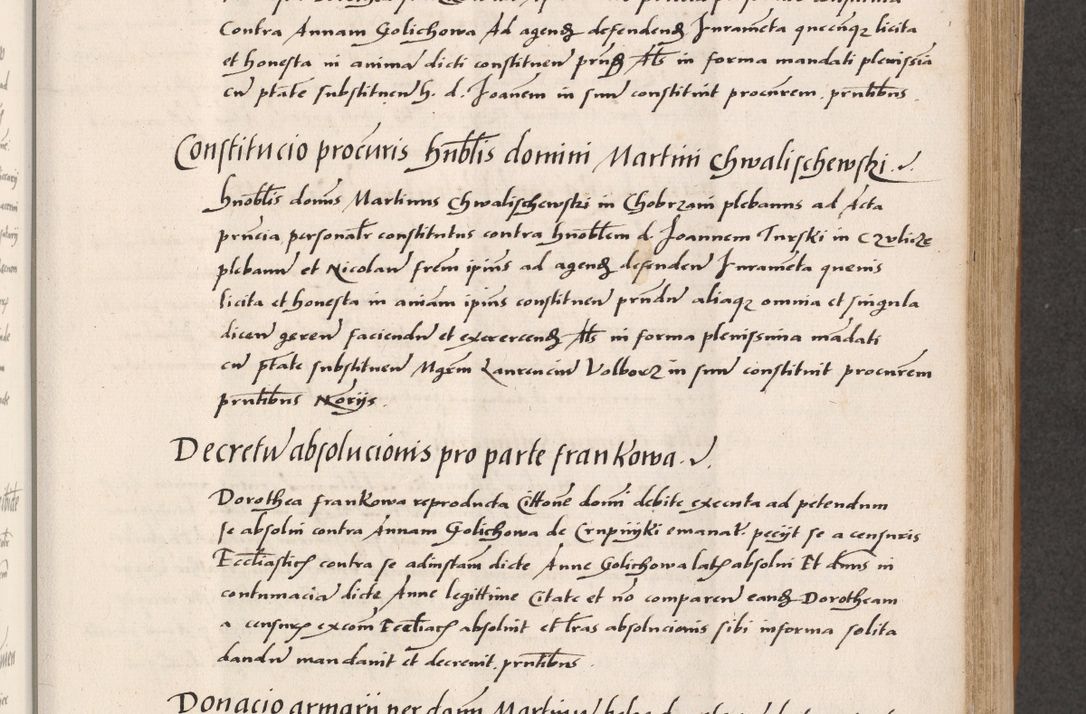 Contra Annam Golichowa Ad agend defendend Jurameta quecunqz licita
et honesta in anima dicti constituen prnd Alts in forma mandati plenissia
cu ptate substituen h. d. Joanem in sum constituit procurem. prntibus
Constitucio procuris hnblis domini Martini Chwalischewski.
hnoblis domus Martinus Chwalischewski in Chobrzani plebanus ad Acta
prncia personalr constitutus contra hnoblem d. Joannem Turski in Czulicze
plebanu et Nicolau frem ipius ad agend defenden Jurameta quenis
licita et honesta in aniam ipius constituen prndu aliaqz omnia et singula
dicen geren faciendu et exercercend Alts in forma plenissima madati
cu ptate substituen Mgrm Laurenciu Volborz in sum constituit procurem
prntibus Norijs.
Decretu absolucionis pro parte frankowa.
Dorothea frankowa reproducta Cittone domi debite executa ad petendum
se absolui contra Annam Golichowa de Crupinyki emanat. peciit se a censuris
Eccliasticis contra se adinstam dicte Anne Golichowa latis absolui Et dnus in
contumacia dicte Anne legittime Citate et no comparen eand Dorotheam
a censuris excom Eccliacis absoluit et lras absolucionis sibi informa solita
dandu mandauit et decreuit. prntibus.
Donacio armarii per dom Martinu